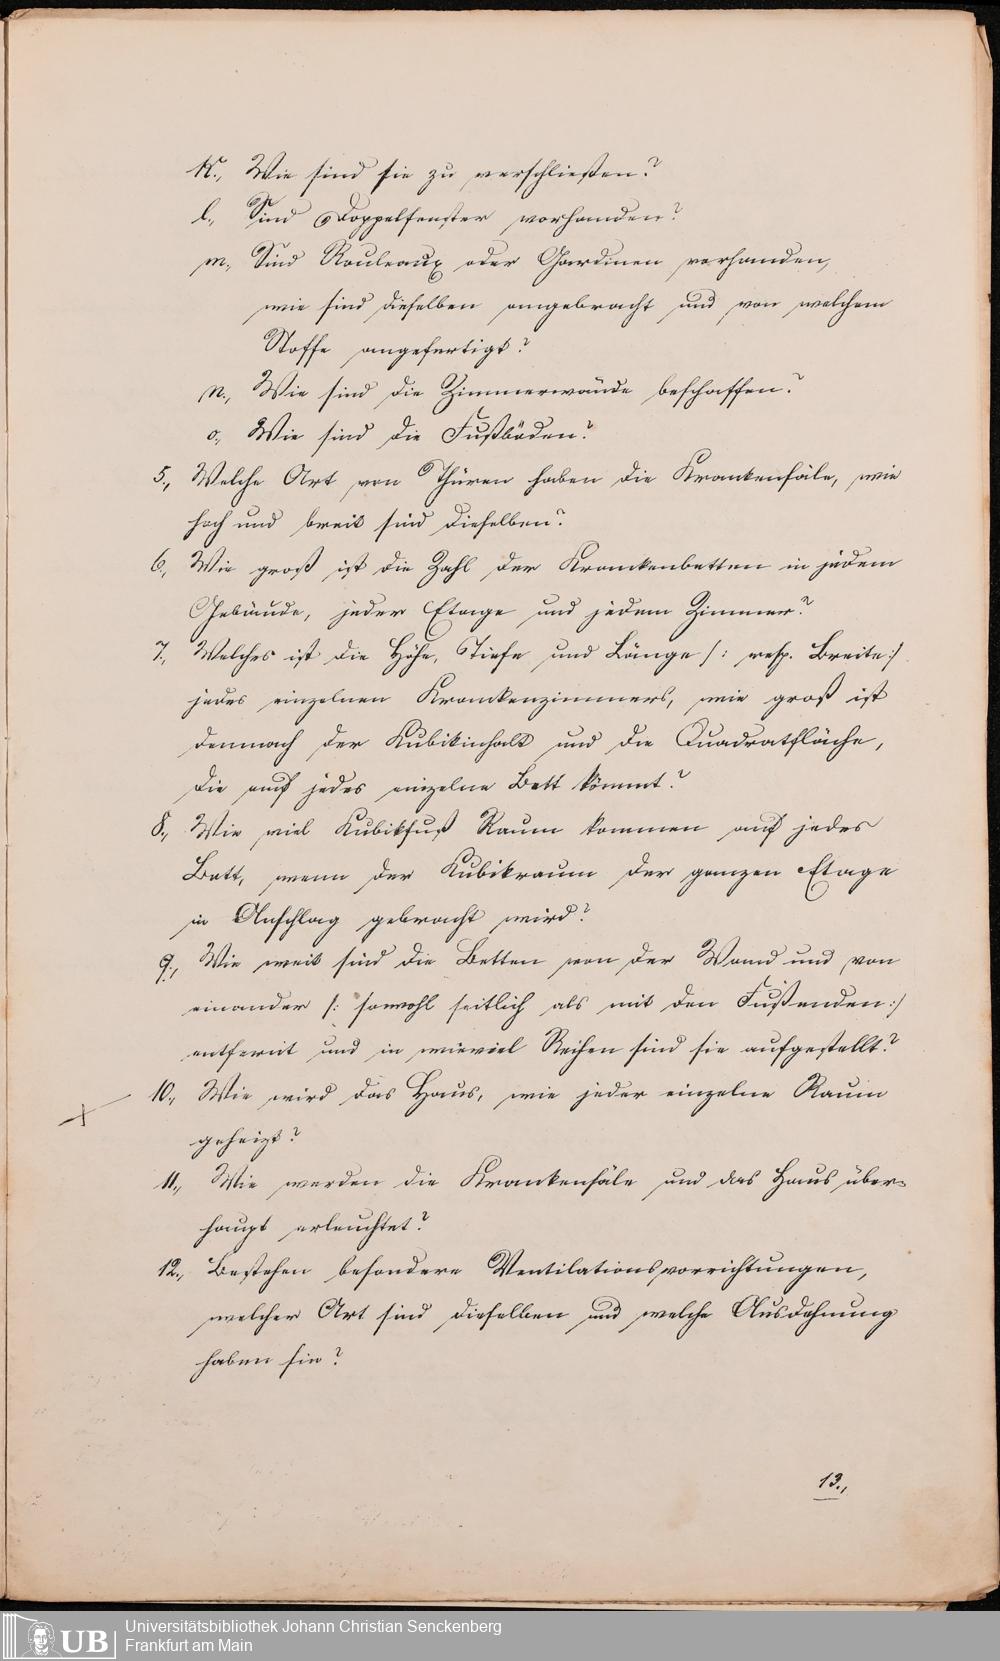 k., Wie sind sie zu verschließen?
l., Sind Doppelfenster vorhanden?
m., Sind Rouleaux oder Gardinen vorhanden,
wie sind dieselben angebracht und von welchem
Stoffe angefertigt?
n., Wie sind die Zimmerwände beschaffen?
o., Wie sind die Fußböden?
5., Welche Art von Thüren haben die Krankensäle, wie
hoch und breit sind dieselben?
6., Wie groß ist die Zahl der Krankenbetten in jedem
Gebäude, jeder Etage und jedem Zimmer?
7., Welches ist die Höhe, Tiefe und Länge /: resp. Breite :/
jedes einzelnen Krankenzimmers, wie groß ist
demnach der Kubikinhalt und die Quadratfläche,
die auf jedes einzelne Bett kömmt?
8., Wie viel Kubikfuß Raum kommen auf jedes
Bett, wenn der Kubikraum der ganzen Etage
in Anschlag gebracht wird?
9., Wie weit sind die Betten von der Wand und von
einander /: sowohl seitlich als mit den Fußenden :/
entfernt und in wieviel Reihen sind sie aufgestellt?
10., Wie wird das Haus, wie jeder einzelne Raum
geheizt?
11., Wie werden die Krankensäle und das Haus über-
haupt erleuchtet?
12., Bestehen besondere Ventilationsvorrichtungen,
welcher Art sind dieselben und welche Ausdehnung
haben sie?
13.,
UB Universitätsbibliothek Johann Christian Senckenberg
Frankfurt am Main